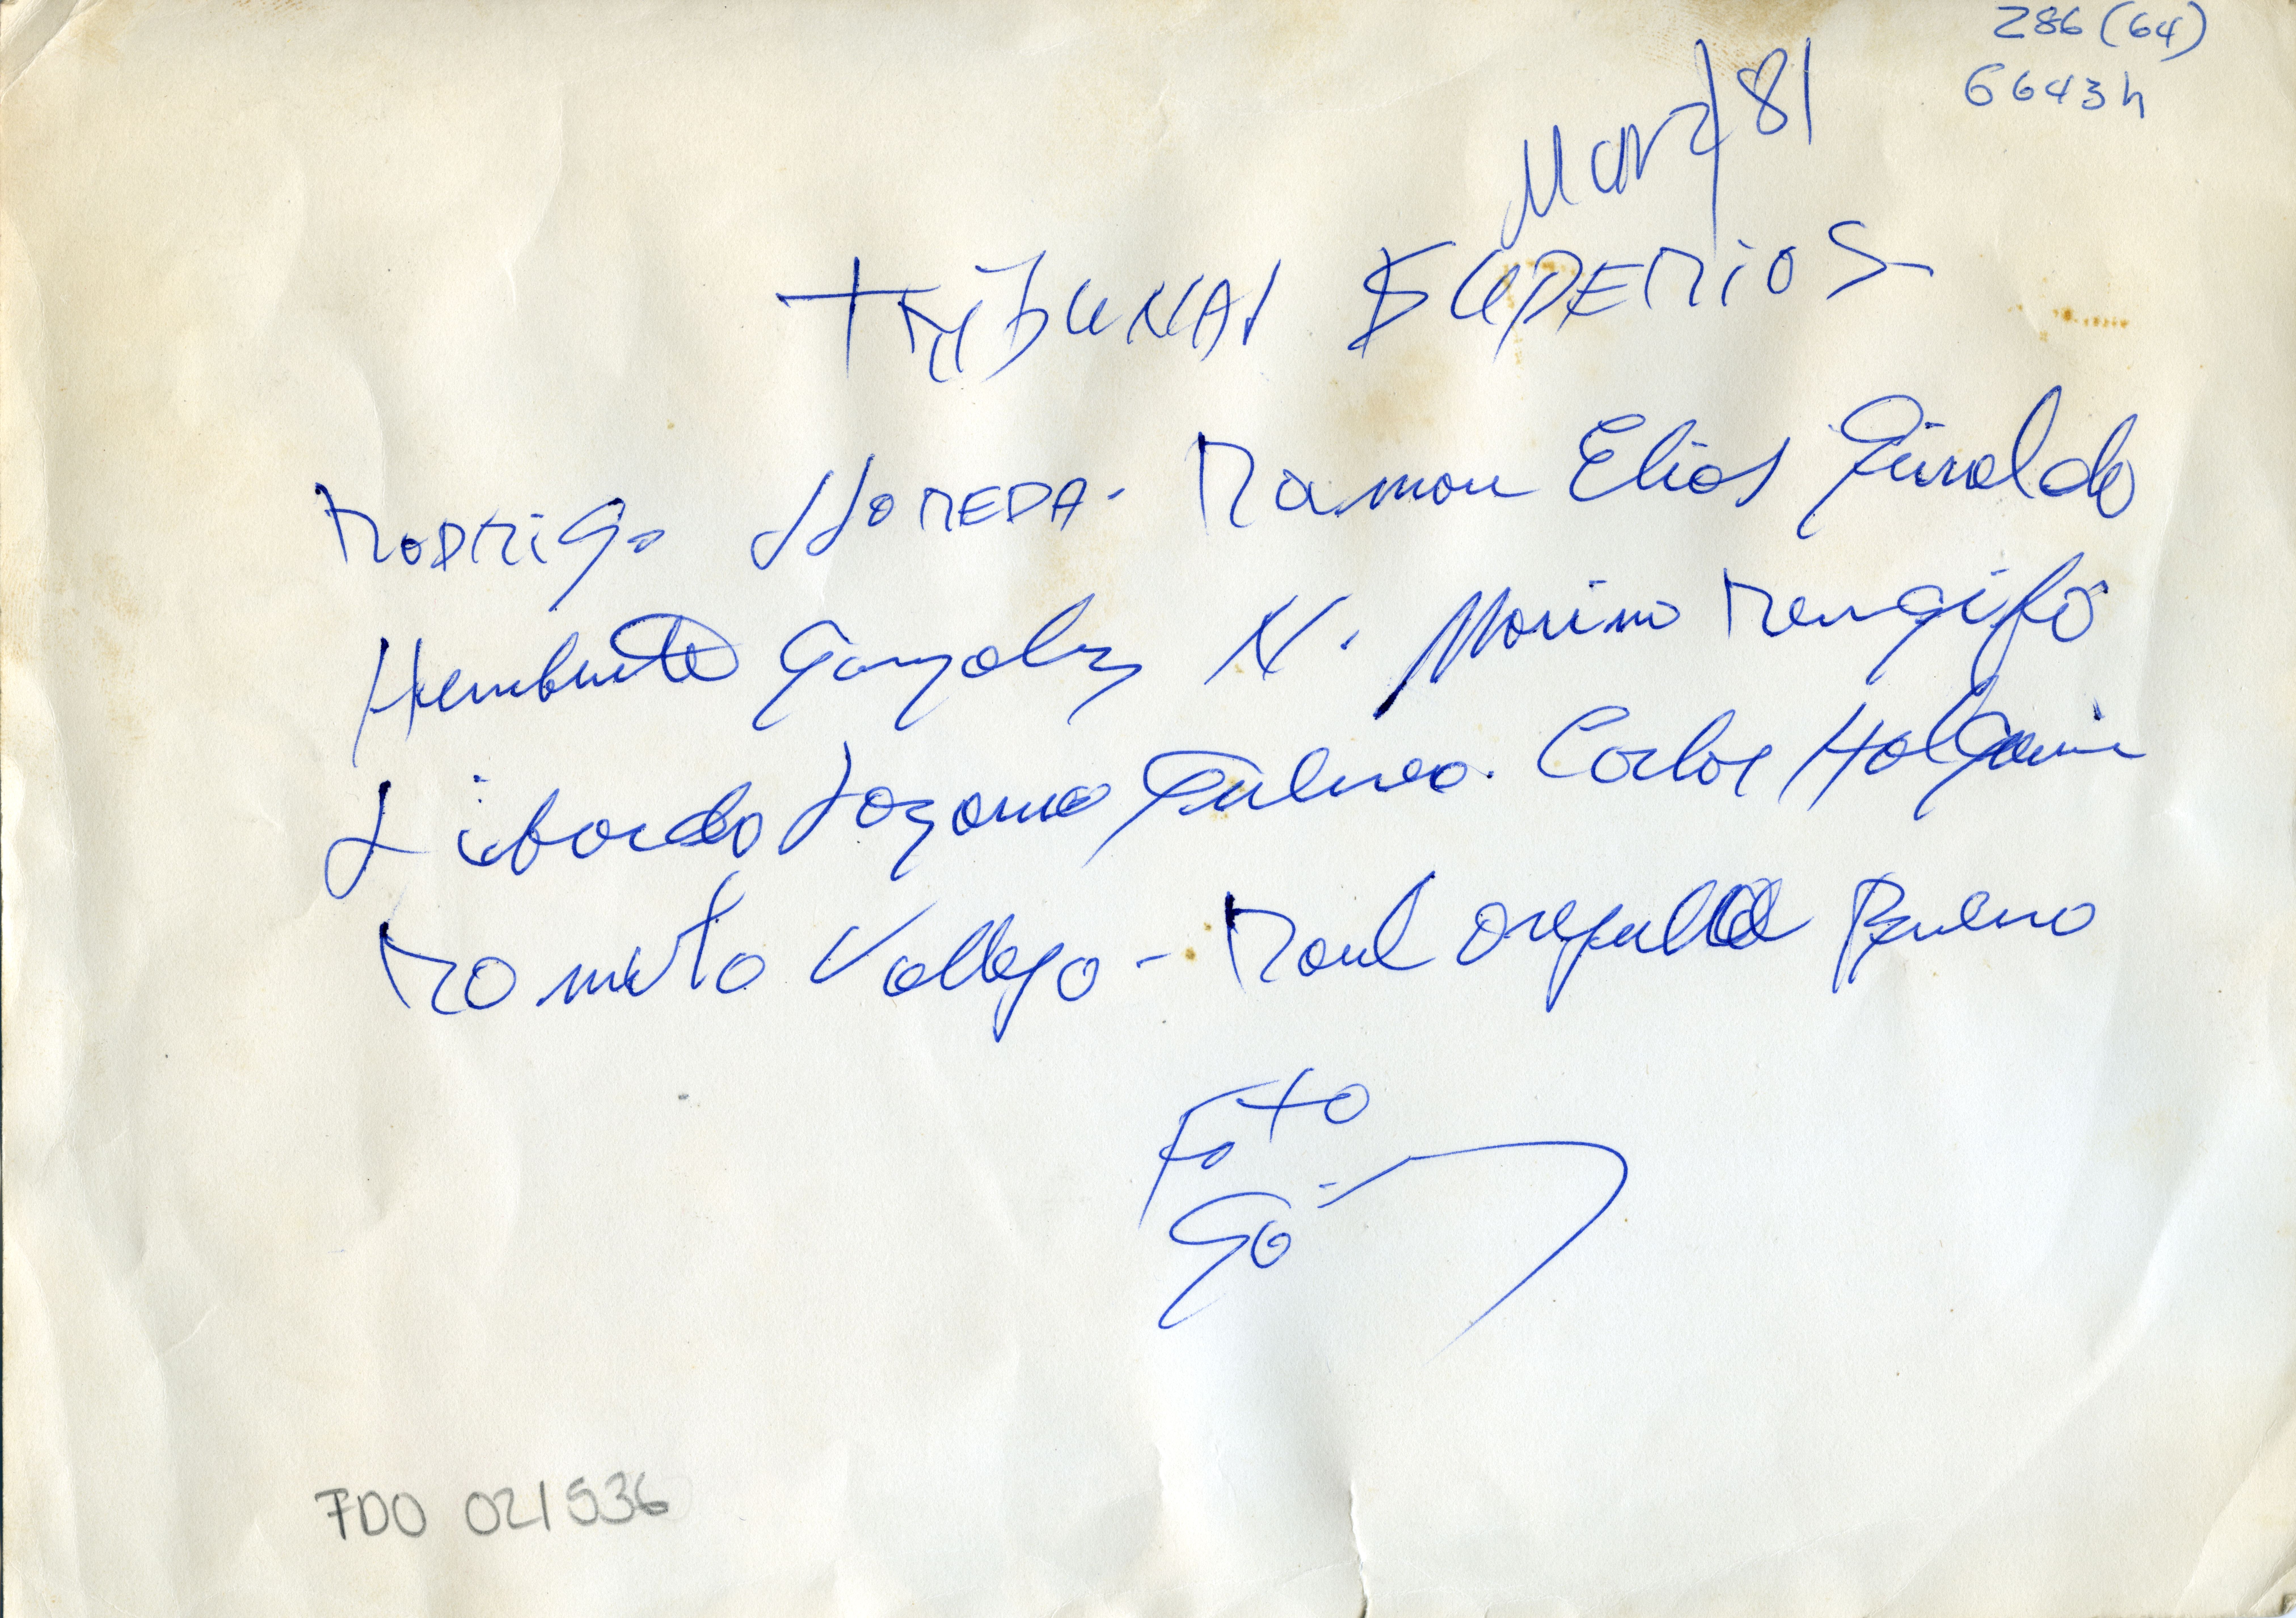 286 (64)
6643h
Marz/81
TRIBUNAL SUPERIOR
RODRIGO LLOREDA - Ramon Elias Giraldo
Humberto Gonzalez N. Marino Rengifo
Libardo Lozano Guerrero. Carlos Holguin
Romulo Vallejo - Raul Orejuela Bueno
Foto
Gó
7DO 021536